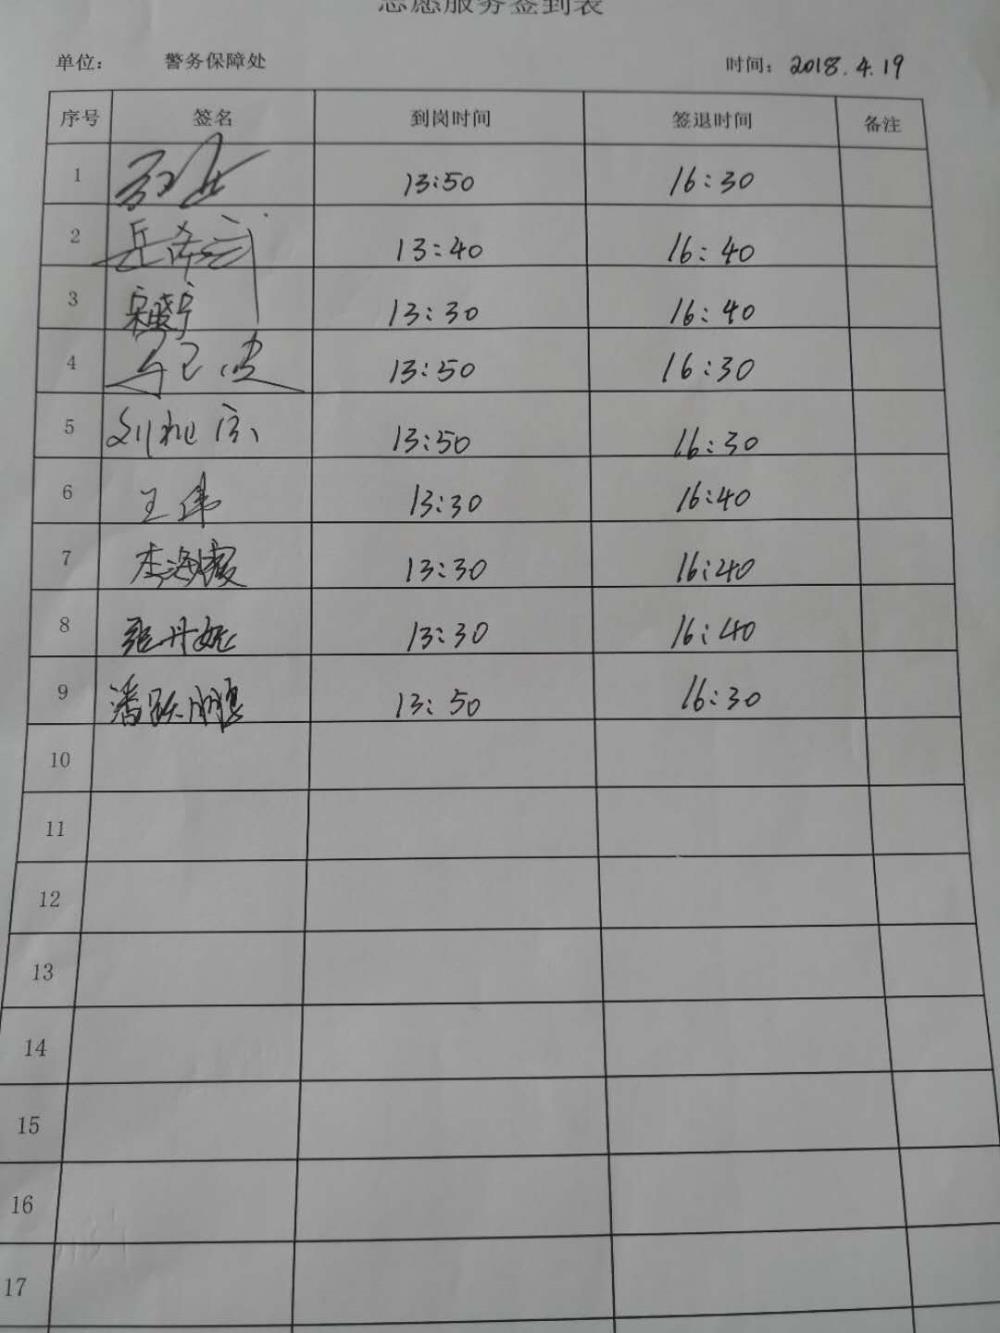 志愿服务签到表
单位： 警务保障处 时间：2018.4.19
序号 签名 到岗时间 签退时间 备注
1 13:50 16:30
2 13:40 16:40
3 宋晓宁 13:30 16:40
4 13:50 16:30
5 刘 13:50 16:30
6 王伟 13:30 16:40
7 李海霞 13:30 16:40
8 张丹妮 13:30 16:40
9 潘跃鹏 13:50 16:30
10
11
12
13
14
15
16
17